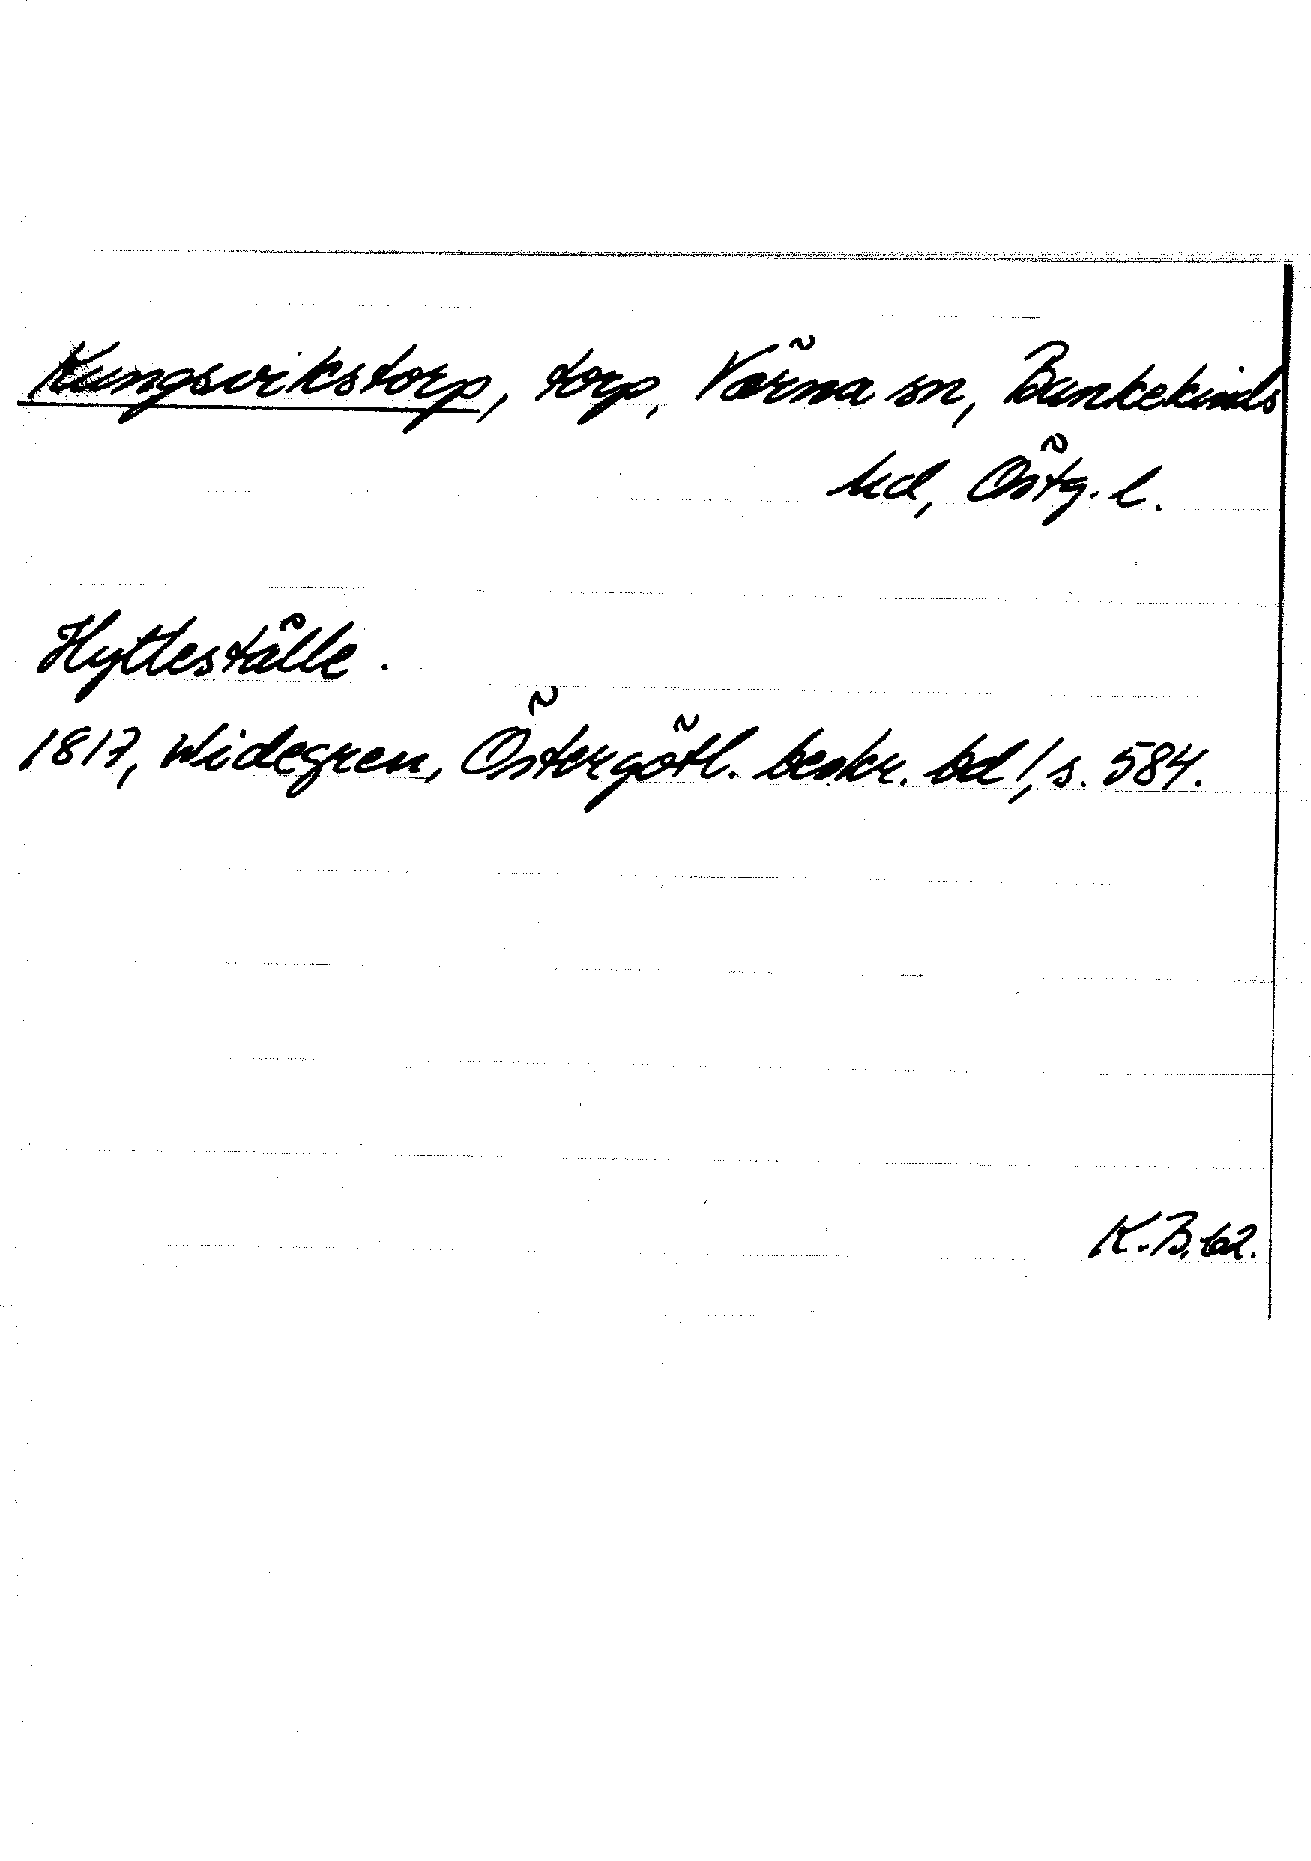 Kungsvikstorp, torp, Värna sn, Bankekinds
hd, Östg. l.
Hytteställe.
1817, Widegren, Östergötl. beskr. bd 1, s. 584.
K.B. 62.